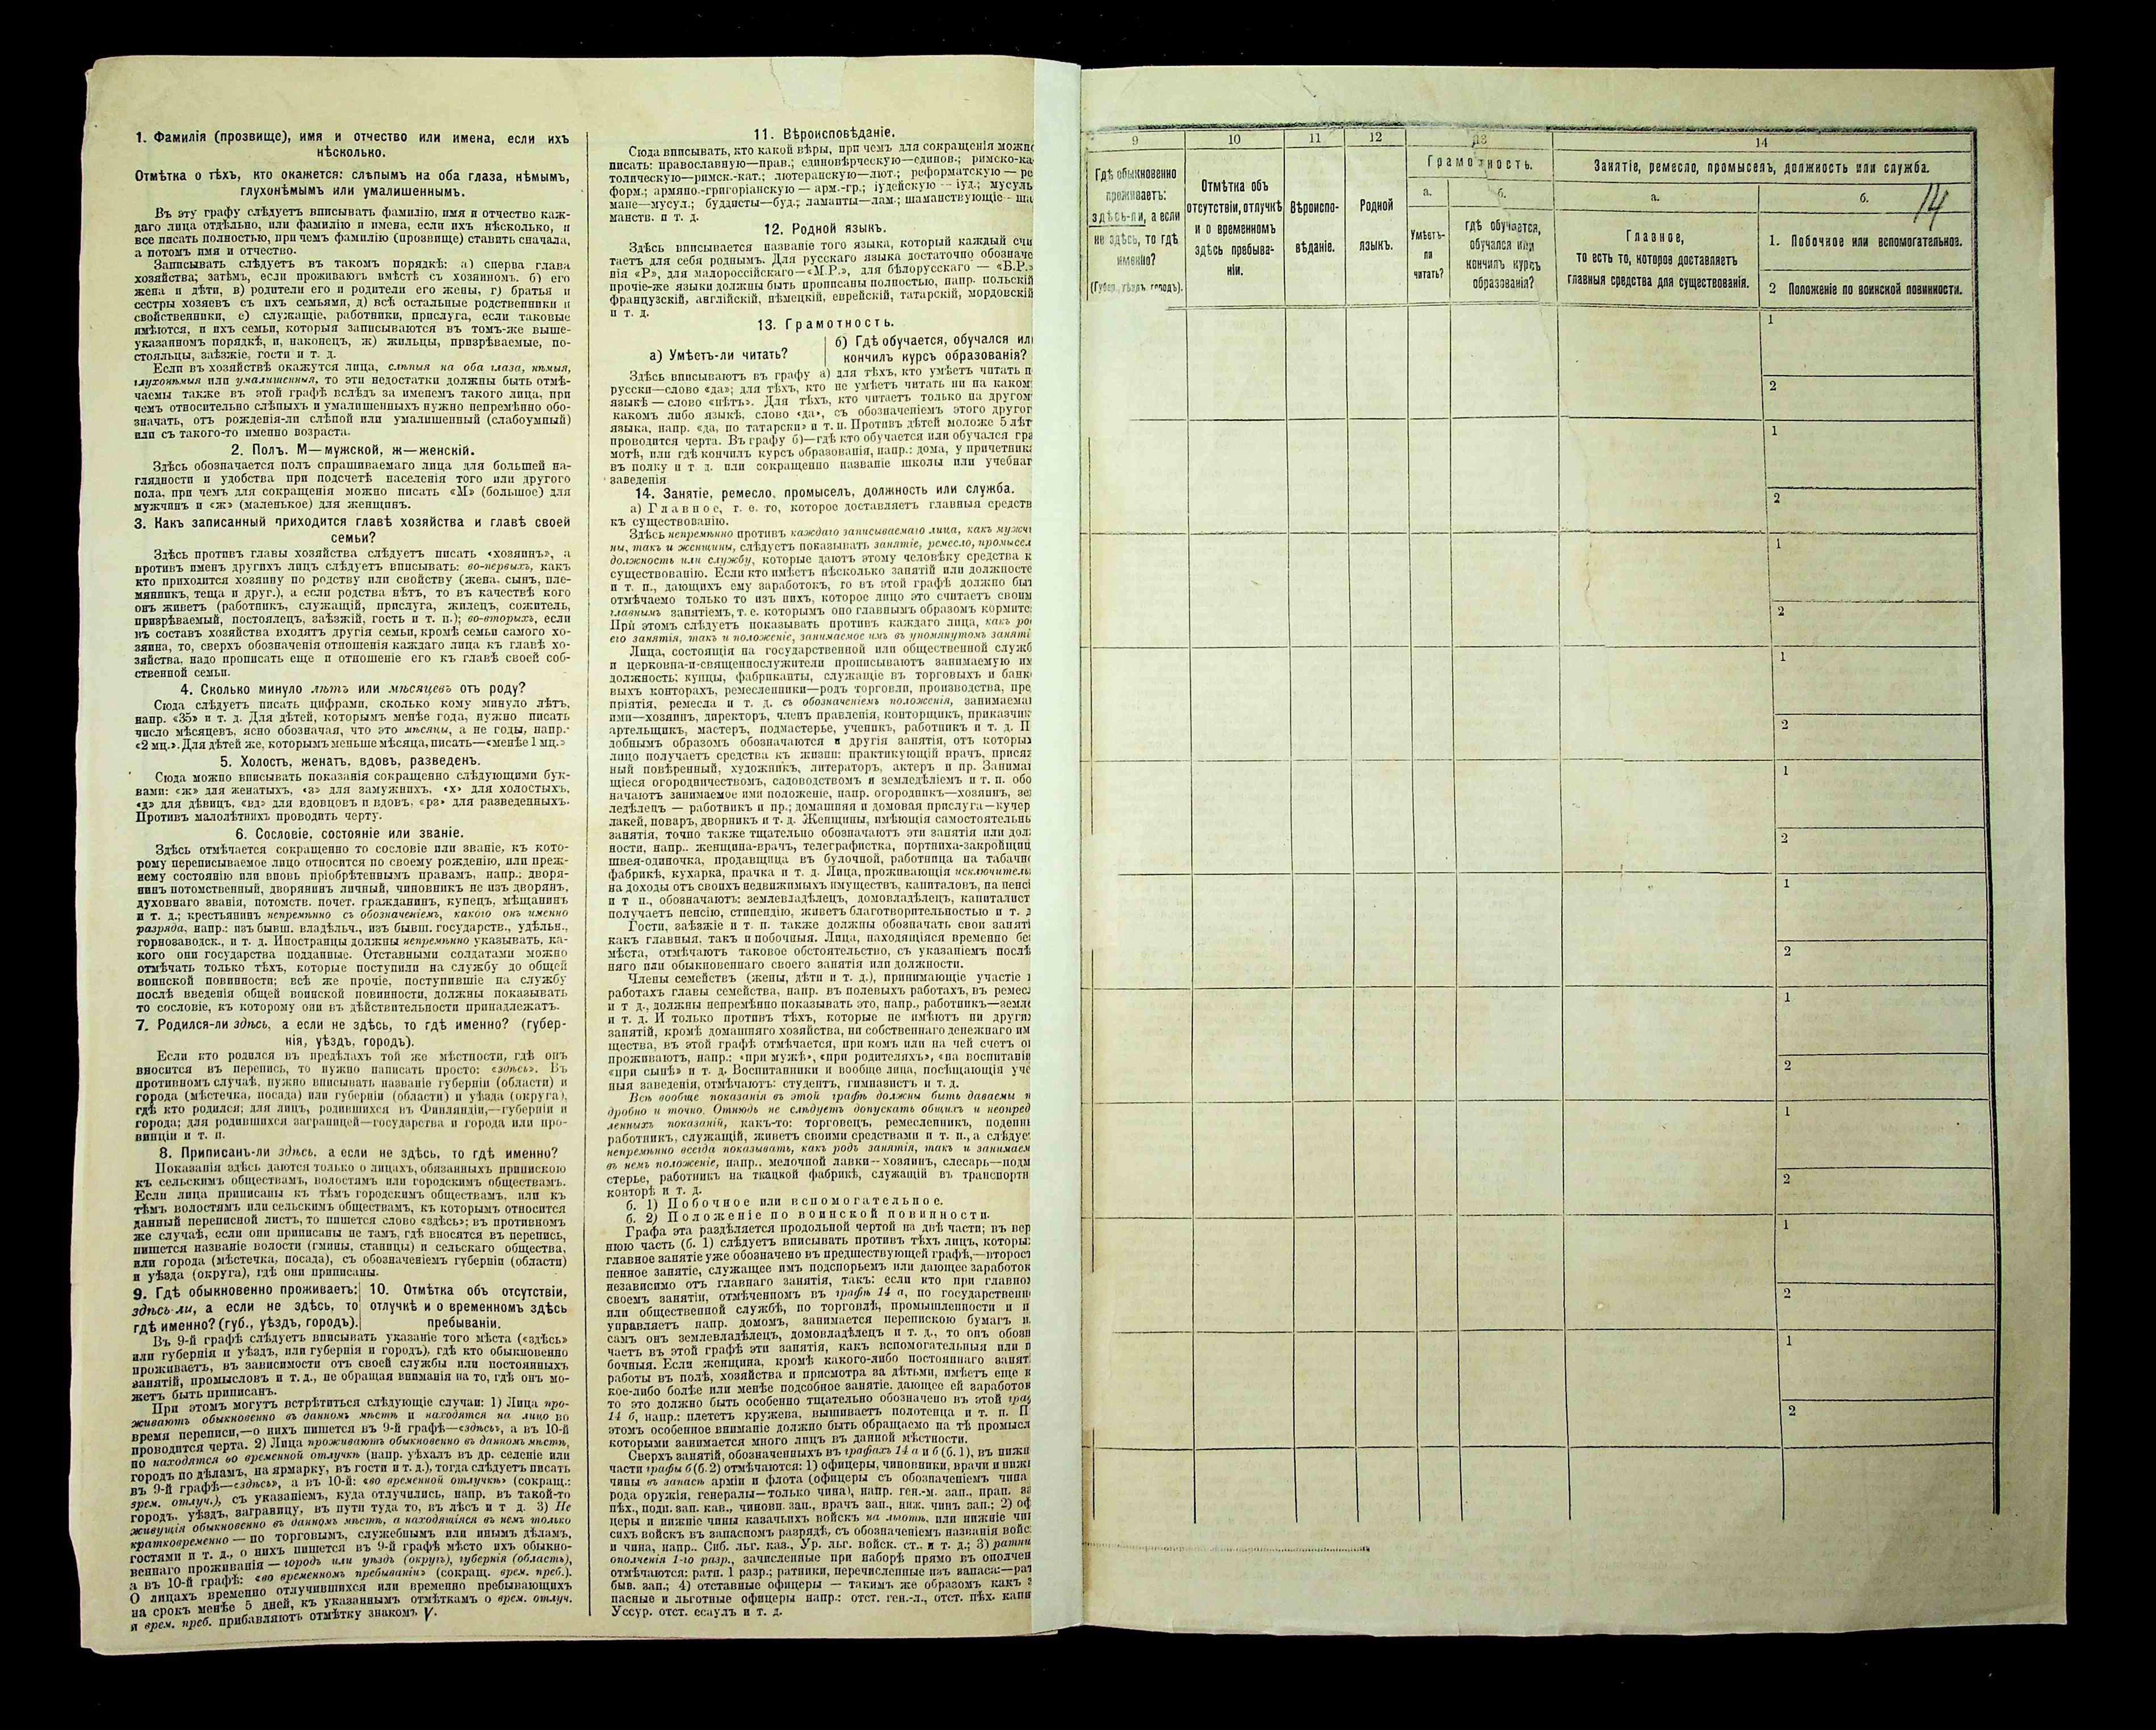 1. Фамилія (прозвище), имя и отчество или имена, если ихъ
нѣсколько.
Отмѣтка о тѣхъ, кто окажется: слѣпымъ на оба глаза, нѣмымъ,
глухонѣмымъ или умалишеннымъ.
Въ эту графу слѣдуетъ вписывать фамилію, имя и отчество каж-
даго лица отдѣльно, или фамилію и имена, если ихъ нѣсколько, и
все писать полностью, при чемъ фамилію (прозвище) ставить сначала,
а потомъ имя и отчество.
Записывать слѣдуетъ въ такомъ порядкѣ: а) сперва глава
хозяйства; затѣмъ, если проживаютъ вмѣстѣ съ хозяиномъ. б) его
жена и дѣти, в) родители его и родители его жены, г) братья и
сестры хозяевъ съ ихъ семьями, д) всѣ остальные родственники и
свойственники, е) служащіе, работники, прислуга, если таковые
имѣются, и ихъ семьи, которыя записываются въ томъ-же выше-
указанномъ порядкѣ, и, наконецъ, ж) жильцы, призрѣваемые, по-
стояльцы, заѣзжіе, гости и т. д.
Если въ хозяйствѣ окажутся лица, слѣпыя на оба глаза, нѣмыя,
глухонѣмыя или умалишенныя, то эти недостатки должны быть отмѣ-
чаемы также въ этой графѣ вслѣдъ за именемъ такого лица, при
чемъ относительно слѣпыхъ и умалишенныхъ нужно непремѣнно обо-
значать, отъ рожденія-ли слѣпой или умалишенный (слабоумный)
или съ такого-то именно возраста.
2. Полъ. М—мужской, ж—женскій.
Здѣсь обозначается полъ спрашиваемаго лица для большей на-
глядности и удобства при подсчетѣ населенія того или другого
пола, при чемъ для сокращенія можно писать «М» (большое) для
мужчинъ и «ж» (маленькое) для женщинъ.
3. Какъ записанный приходится главѣ хозяйства и главѣ своей
семьи?
Здѣсь противъ главы хозяйства слѣдуетъ писать «хозяинъ», а
противъ именъ другихъ лицъ слѣдуетъ вписывать: во-первыхъ, какъ
кто приходится хозяину по родству или свойству (жена, сынъ, пле-
мянникъ, теща и друг.), а если родства нѣтъ, то въ качествѣ кого
онъ живетъ (работникъ, служащій, прислуга, жилецъ, сожитель,
призрѣваемый, постоялецъ, заѣзжій, гость и т. п.); во-вторыхъ, если
въ составъ хозяйства входятъ другія семьи, кромѣ семьи самого хо-
зяина, то, сверхъ обозначенія отношенія каждаго лица къ главѣ хо-
зяйства, надо прописать еще и отношеніе его къ главѣ своей соб-
ственной семьи.
4. Сколько минуло лѣтъ или мѣсяцевъ отъ роду?
Сюда слѣдуетъ писать цифрами, сколько кому минуло лѣтъ,
напр. «35» и т. д. Для дѣтей, которымъ менѣе года, нужно писать
число мѣсяцевъ, ясно обозначая, что это мѣсяцы, а не годы, напр.-
«2 мц.». Для дѣтей же, которымъ меньше мѣсяца, писать—«менѣе 1 мц.»
5. Холостъ, женатъ, вдовъ, разведенъ.
Сюда можно вписывать показанія сокращенно слѣдующими бук-
вами: «ж» для женатыхъ, «з» для замужнихъ, «х» для холостыхъ,
«д» для дѣвицъ, «вд» для вдовцовъ и вдовъ, «рз» для разведенныхъ.
Противъ малолѣтнихъ проводить черту.
6. Сословіе, состояніе или званіе.
Здѣсь отмѣчается сокращенно то сословіе или званіе, къ кото-
рому переписываемое лицо относится по своему рожденію, или преж-
нему состоянію или вновь пріобрѣтеннымъ правамъ, напр.: дворя-
нинъ потомственный, дворянинъ личный, чиновникъ не изъ дворянъ,
духовнаго званія, потомств. почет. гражданинъ, купецъ, мѣщанинъ
и т. д.; крестьянинъ непремѣнно съ обозначеніемъ, какого онъ именно
разряда, напр.: изъ бывш. владѣльч., изъ бывш. государств., удѣльн.,
горнозаводск., и т. д. Иностранцы должны непремѣнно указывать, ка-
кого они государства подданные. Отставными солдатами можно
отмѣчать только тѣхъ, которые поступили на службу до общей
воинской повинности; всѣ же прочіе, поступившіе на службу
послѣ введенія общей воинской повинности, должны показывать
то сословіе, къ которому они въ дѣйствительности принадлежатъ.
7. Родился-ли здѣсь, а если не здѣсь, то гдѣ именно? (губер-
нія, уѣздъ, городъ).
Если кто родился въ предѣлахъ той же мѣстности, гдѣ онъ
вносится въ перепись, то нужно написать просто: «здѣсь». Въ
противномъ случаѣ, нужно вписывать названіе губерніи (области) и
города (мѣстечка, посада) или губерніи (области) и уѣзда (округа),
гдѣ кто родился; для лицъ, родившихся въ Финляндіи,—губерніи и
города; для родившихся заграницей—государства и города или про-
винціи и т. п.
8. Приписанъ-ли здѣсь, а если не здѣсь, то гдѣ именно?
Показанія здѣсь даются только о лицахъ, обязанныхъ припискою
къ сельскимъ обществамъ, волостямъ или городскимъ обществамъ.
Если лица приписаны къ тѣмъ городскимъ обществамъ, или къ
тѣмъ волостямъ или сельскимъ обществамъ, къ которымъ относится
данный переписной листъ, то пишется слово «здѣсь»; въ противномъ
же случаѣ, если они приписаны не тамъ, гдѣ вносятся въ перепись,
пишется названіе волости (гмины, станицы) и сельскаго общества,
или города (мѣстечка, посада), съ обозначеніемъ губерніи (области)
и уѣзда (округа), гдѣ они приписаны.
9. Гдѣ обыкновенно проживаетъ:
здѣсь-ли, а если не здѣсь, то
гдѣ именно? (губ., уѣздъ, городъ).
10. Отмѣтка объ отсутствіи,
отлучкѣ и о временномъ здѣсь
пребываніи.
Въ 9-й графѣ слѣдуетъ вписывать указаніе того мѣста («здѣсь»
или губернія и уѣздъ, или губернія и городъ), гдѣ кто обыкновенно
проживаетъ, въ зависимости отъ своей службы или постоянныхъ
занятій, промысловъ и т. д., не обращая вниманія на то, гдѣ онъ мо-
жетъ быть приписанъ.
При этомъ могутъ встрѣтиться слѣдующіе случаи: 1) Лица про-
живаютъ обыкновенно въ данномъ мѣстѣ и находятся на лицо во
время переписи,—о нихъ пишется въ 9-й графѣ—«здѣсь», а въ 10-й
проводится черта. 2) Лица проживаютъ обыкновенно въ данномъ мѣстѣ,
но находятся во временной отлучкѣ (напр. уѣхалъ въ др. селеніе или
городъ по дѣламъ, на ярмарку, въ гости и т. д.), тогда слѣдуетъ писать
въ 9-й графѣ—«здѣсь», а въ 10-й: «во временной отлучкѣ» (сокращ.:
врем. отлуч.), съ указаніемъ, куда отлучились, напр. въ такой-то
городъ, уѣздъ, заграницу, въ пути туда то, въ лѣсъ и т д. 3) Не
живущія обыкновенно въ данномъ мѣстѣ, а находящіяся въ немъ только
кратковременно — по торговымъ, служебнымъ или инымъ дѣламъ,
гостями и т. д., о нихъ пишется въ 9-й графѣ мѣсто ихъ обыкно-
веннаго проживанія — городъ или уѣздъ (округъ), губернія (область),
а въ 10-й графѣ: «во временномъ пребываніи» (сокращ. врем. преб.).
О лицахъ временно отлучившихся или временно пребывающихъ
на срокъ менѣе 5 дней, къ указаннымъ отмѣткамъ о врем. отлуч.
и врем. преб. прибавляютъ отмѣтку знакомъ V.
11. Вѣроисповѣданіе.
Сюда вписывать, кто какой вѣры, при чемъ для сокращенія можно
писать: православную—прав.; единовѣрческую—единов.; римско-ка-
толическую—римск.-кат.; лютеранскую—лют.; реформатскую — ре
форм.; армяно.-григоріанскую — арм.-гр.; іудейскую — іуд.; мусуль
мане—мусул.; буддисты—буд.; ламаиты—лам.; шаманствующіе — ша
манств. и т. д.
12. Родной языкъ.
Здѣсь вписывается названіе того языка, который каждый счи
таетъ для себя роднымъ. Для русскаго языка достаточно обозначе
нія «Р», для малороссійскаго—«М.Р.», для бѣлорусскаго — «Б.Р.»
прочіе-же языки должны быть прописаны полностью, напр. польскій
французскій, англійскій, нѣмецкій, еврейскій, татарскій, мордовскій
и т. д.
13. Грамотность.
а) Умѣетъ-ли читать?
б) Гдѣ обучается, обучался или
кончилъ курсъ образованія?
Здѣсь вписываютъ въ графу а) для тѣхъ, кто умѣетъ читать п
русски—слово «да»; для тѣхъ, кто не умѣетъ читать ни на каком
языкѣ — слово «нѣтъ». Для тѣхъ, кто читаетъ только на другом
какомъ либо языкѣ, слово «да», съ обозначеніемъ этого другог
языка, напр. «да, по татарски» и т. п. Противъ дѣтей моложе 5 лѣт
проводится черта. Въ графу б)—гдѣ кто обучается или обучался гра
мотѣ, или гдѣ кончилъ курсъ образованія, напр.: дома, у причетника
въ полку и т. д. или сокращенно названіе школы или учебнаг
заведенія
14. Занятіе, ремесло, промыселъ, должность или служба.
а) Главное, т. е. то, которое доставляетъ главныя средств
къ существованію.
Здѣсь непремѣнно противъ каждаго записываемаго лица, какъ мужчи
ны, такъ и женщины, слѣдуетъ показывать занятіе, ремесло, промысел
должность или службу, которые даютъ этому человѣку средства к
существованію. Если кто имѣетъ нѣсколько занятій или должносте
и т. п., дающихъ ему заработокъ, то въ этой графѣ должно быт
отмѣчаемо только то изъ нихъ, которое лицо это считаетъ своим
главнымъ занятіемъ, т. е. которымъ оно главнымъ образомъ кормитс
При этомъ слѣдуетъ показывать противъ каждаго лица, какъ ро
его занятія, такъ и положеніе, занимаемое имъ въ упомянутомъ заняті
Лица, состоящія на государственной или общественной служб
и церковна-и-священнослужители прописываютъ занимаемую им
должность; купцы, фабриканты, служащіе въ торговыхъ и банк
выхъ конторахъ, ремесленники—родъ торговли, производства, пре
пріятія, ремесла и т. д. съ обозначеніемъ положенія, занимаема
ими—хозяинъ, директоръ, членъ правленія, конторщикъ, приказчик
артельщикъ, мастеръ, подмастерье, ученикъ, работникъ и т. д. П
добнымъ образомъ обозначаются и другія занятія, отъ которых
лицо получаетъ средства къ жизни: практикующій врачъ, присяж
ный повѣренный, художникъ, литераторъ, актеръ и пр. Занимаю
щіеся огородничествомъ, садоводствомъ и земледѣліемъ и т. п. обо
начаютъ занимаемое ими положеніе, напр. огородникъ—хозяинъ, зе
ледѣлецъ — работникъ и пр.; домашняя и домовая прислуга—кучер
лакей, поваръ, дворникъ и т. д. Женщины, имѣющія самостоятельны
занятія, точно также тщательно обозначаютъ эти занятія или дол
ности, напр.. женщина-врачъ, телеграфистка, портниха-закройщиц
швея-одиночка, продавщица въ булочной, работница на табачн
фабрикѣ, кухарка, прачка и т. д. Лица, проживающія исключительн
на доходы отъ своихъ недвижимыхъ имуществъ, капиталовъ, на пенсі
и т п., обозначаютъ: землевладѣлецъ, домовладѣлецъ, капиталист
получаетъ пенсію, стипендію, живетъ благотворительностью и т. д
Гости, заѣзжіе и т. п. также должны обозначать свои заняті
какъ главныя, такъ и побочныя. Лица, находящіяся временно бе
мѣста, отмѣчаютъ таковое обстоятельство, съ указаніемъ послѣ
няго или обыкновеннаго своего занятія или должности.
Члены семействъ (жены, дѣти и т. д.), принимающіе участіе
работахъ главы семейства, напр. въ полевыхъ работахъ, въ ремес
и т д., должны непремѣнно показывать это, напр., работникъ—земле
и т. д. И только противъ тѣхъ, которые не имѣютъ ни други
занятій, кромѣ домашняго хозяйства, ни собственнаго денежнаго им
щества, въ этой графѣ отмѣчается, при комъ или на чей счетъ о
проживаютъ, напр.: «при мужѣ», «при родителяхъ», «на воспитаніи
«при сынѣ» и т. д. Воспитанники и вообще лица, посѣщающія уче
ныя заведенія, отмѣчаютъ: студентъ, гимназистъ и т. д.
Всѣ вообще показанія въ этой графѣ должны быть даваемы п
дробно и точно. Отнюдь не слѣдуетъ допускать общихъ и неопред
ленныхъ показаній, какъ-то: торговецъ, ремесленникъ, поденщ
работникъ, служащій, живетъ своими средствами и т. п., а слѣдуе
непремѣнно всегда показывать, какъ родъ занятія, такъ и занимаем
въ немъ положеніе, напр.. мелочной лавки—хозяинъ, слесарь—подм
стерье, работникъ на ткацкой фабрикѣ, служащій въ транспортн
конторѣ и т. д.
б. 1) Побочное или вспомогательное.
б. 2) Положеніе по воинской повинности.
Графа эта раздѣляется продольной чертой на двѣ части; въ вер
нюю часть (б. 1) слѣдуетъ вписывать противъ тѣхъ лицъ, которы
главное занятіе уже обозначено въ предшествующей графѣ,—второст
пенное занятіе, служащее имъ подспорьемъ или дающее заработок
независимо отъ главнаго занятія, такъ: если кто при главно
своемъ занятіи, отмѣченномъ въ графѣ 14 а, по государственн
или общественной службѣ, по торговлѣ, промышленности и п
управляетъ напр. домомъ, занимается перепискою бумагъ и
самъ онъ землевладѣлецъ, домовладѣлецъ и т. д., то онъ обозн
чаетъ въ этой графѣ эти занятія, какъ вспомогательныя или п
бочныя. Если женщина, кромѣ какого-либо постояннаго занят
работы въ полѣ, хозяйства и присмотра за дѣтьми, имѣетъ еще к
кое-либо болѣе или менѣе подсобное занятіе, дающее ей заработок
то это должно быть особенно тщательно обозначено въ этой граф
14 б, напр.: плететъ кружева, вышиваетъ полотенца и т. п. П
этомъ особенное вниманіе должно быть обращаемо на тѣ промысл
которыми занимается много лицъ въ данной мѣстности.
Сверхъ занятій, обозначенныхъ въ графахъ 14 а и б (б. 1), въ нижн
части графы б (б. 2) отмѣчаются: 1) офицеры, чиновники, врачи и нижн
чины въ запасѣ арміи и флота (офицеры съ обозначеніемъ чина
рода оружія, генералы—только чина), напр. ген.-м. зап., прап. за
пѣх., подп. зап. кав., чиновн. зап., врачъ зап., ниж. чинъ зап.; 2) оф
церы и нижніе чины казачьихъ войскъ на льготѣ, или нижніе чин
сихъ войскъ въ запасномъ разрядѣ, съ обозначеніемъ названія войс
и чина, напр.. Сиб. льг. каз., Ур. льг. войск. ст.. и т. д.; 3) ратни
ополченія 1-го разр., зачисленные при наборѣ прямо въ ополчен
отмѣчаются: ратн. 1 разр.; ратники, перечисленные изъ запаса:—рат
быв. зап.; 4) отставные офицеры — такимъ же образомъ какъ з
пасные и льготные офицеры напр.: отст. ген.-л., отст. пѣх. капи
Уссур. отст. есаулъ и т. д.
9 10 11 12 13 14
Гдѣ обыкновенно
проживаетъ:
здѣсь-ли, а если
не здѣсь, то гдѣ
именно?
(Губер., уѣздъ, городъ).
Отмѣтка объ
отсутствіи, отлучкѣ
и о временномъ
здѣсь пребыва-
ніи.
Вѣроиспо-
вѣданіе.
Родной
языкъ.
Грамотность.
а. б.
Умѣетъ-
ли
читать?
гдѣ обучается,
обучался или
кончилъ курсъ
образованія?
Занятіе, ремесло, промыселъ, должность или служба.
а. б.
14
Главное,
то есть то, которое доставляетъ
главныя средства для существованія.
1. Побочное или вспомогательное.
2 Положеніе по воинской повинности.
1
2
1
2
1
2
1
2
1
2
1
2
1
2
1
2
1
2
1
2